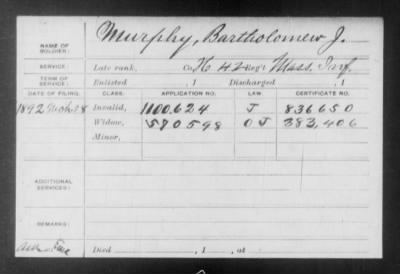 NAME OF SOLDIER: Murphy, Bartholomew J.
SERVICE: Late rank, Co. K 42 Reg't Mass. Inf.
TERM OF SERVICE: Enlisted , 1 Discharged , 1
DATE OF FILING. CLASS. APPLICATION NO. LAW. CERTIFICATE NO.
1892 Mch 28 Invalid, 1100.624 J 836650
Widow, 570598 O J 383,406
Minor,
ADDITIONAL SERVICES:
REMARKS:
Died , 1 , at